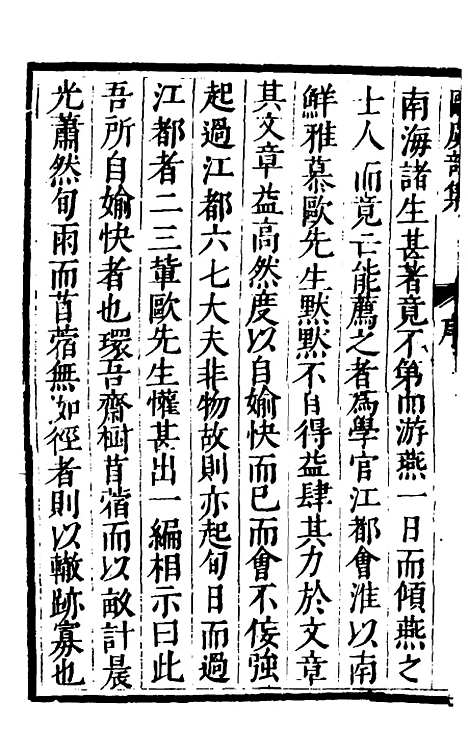 南海諸生甚著竟不第而游燕一日而傾燕之
士人而竟亡能薦之者爲學官江都會淮以南
鮮雅慕歐先生默默不自得益肆其力於文章
其文章益高然度以自媮快而已而會不佞強
起過江都六七大夫非物故則亦起旬日而過
江都者二三輩歐先生懽甚出一編相示曰此
吾所自媮快者也環吾齋樹苜蓿而以畝計晨
光蕭然旬雨而苜蓿無如徑者則以轍跡寡也